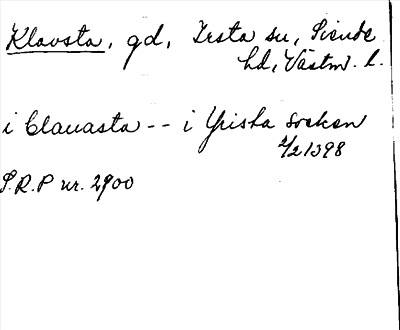 Klavsta, gd, Irsta sn, Siende
hd, Västm. l.
i Clauasta -- i Yrista sokn
2/2 1398
S.R.P nr. 2900